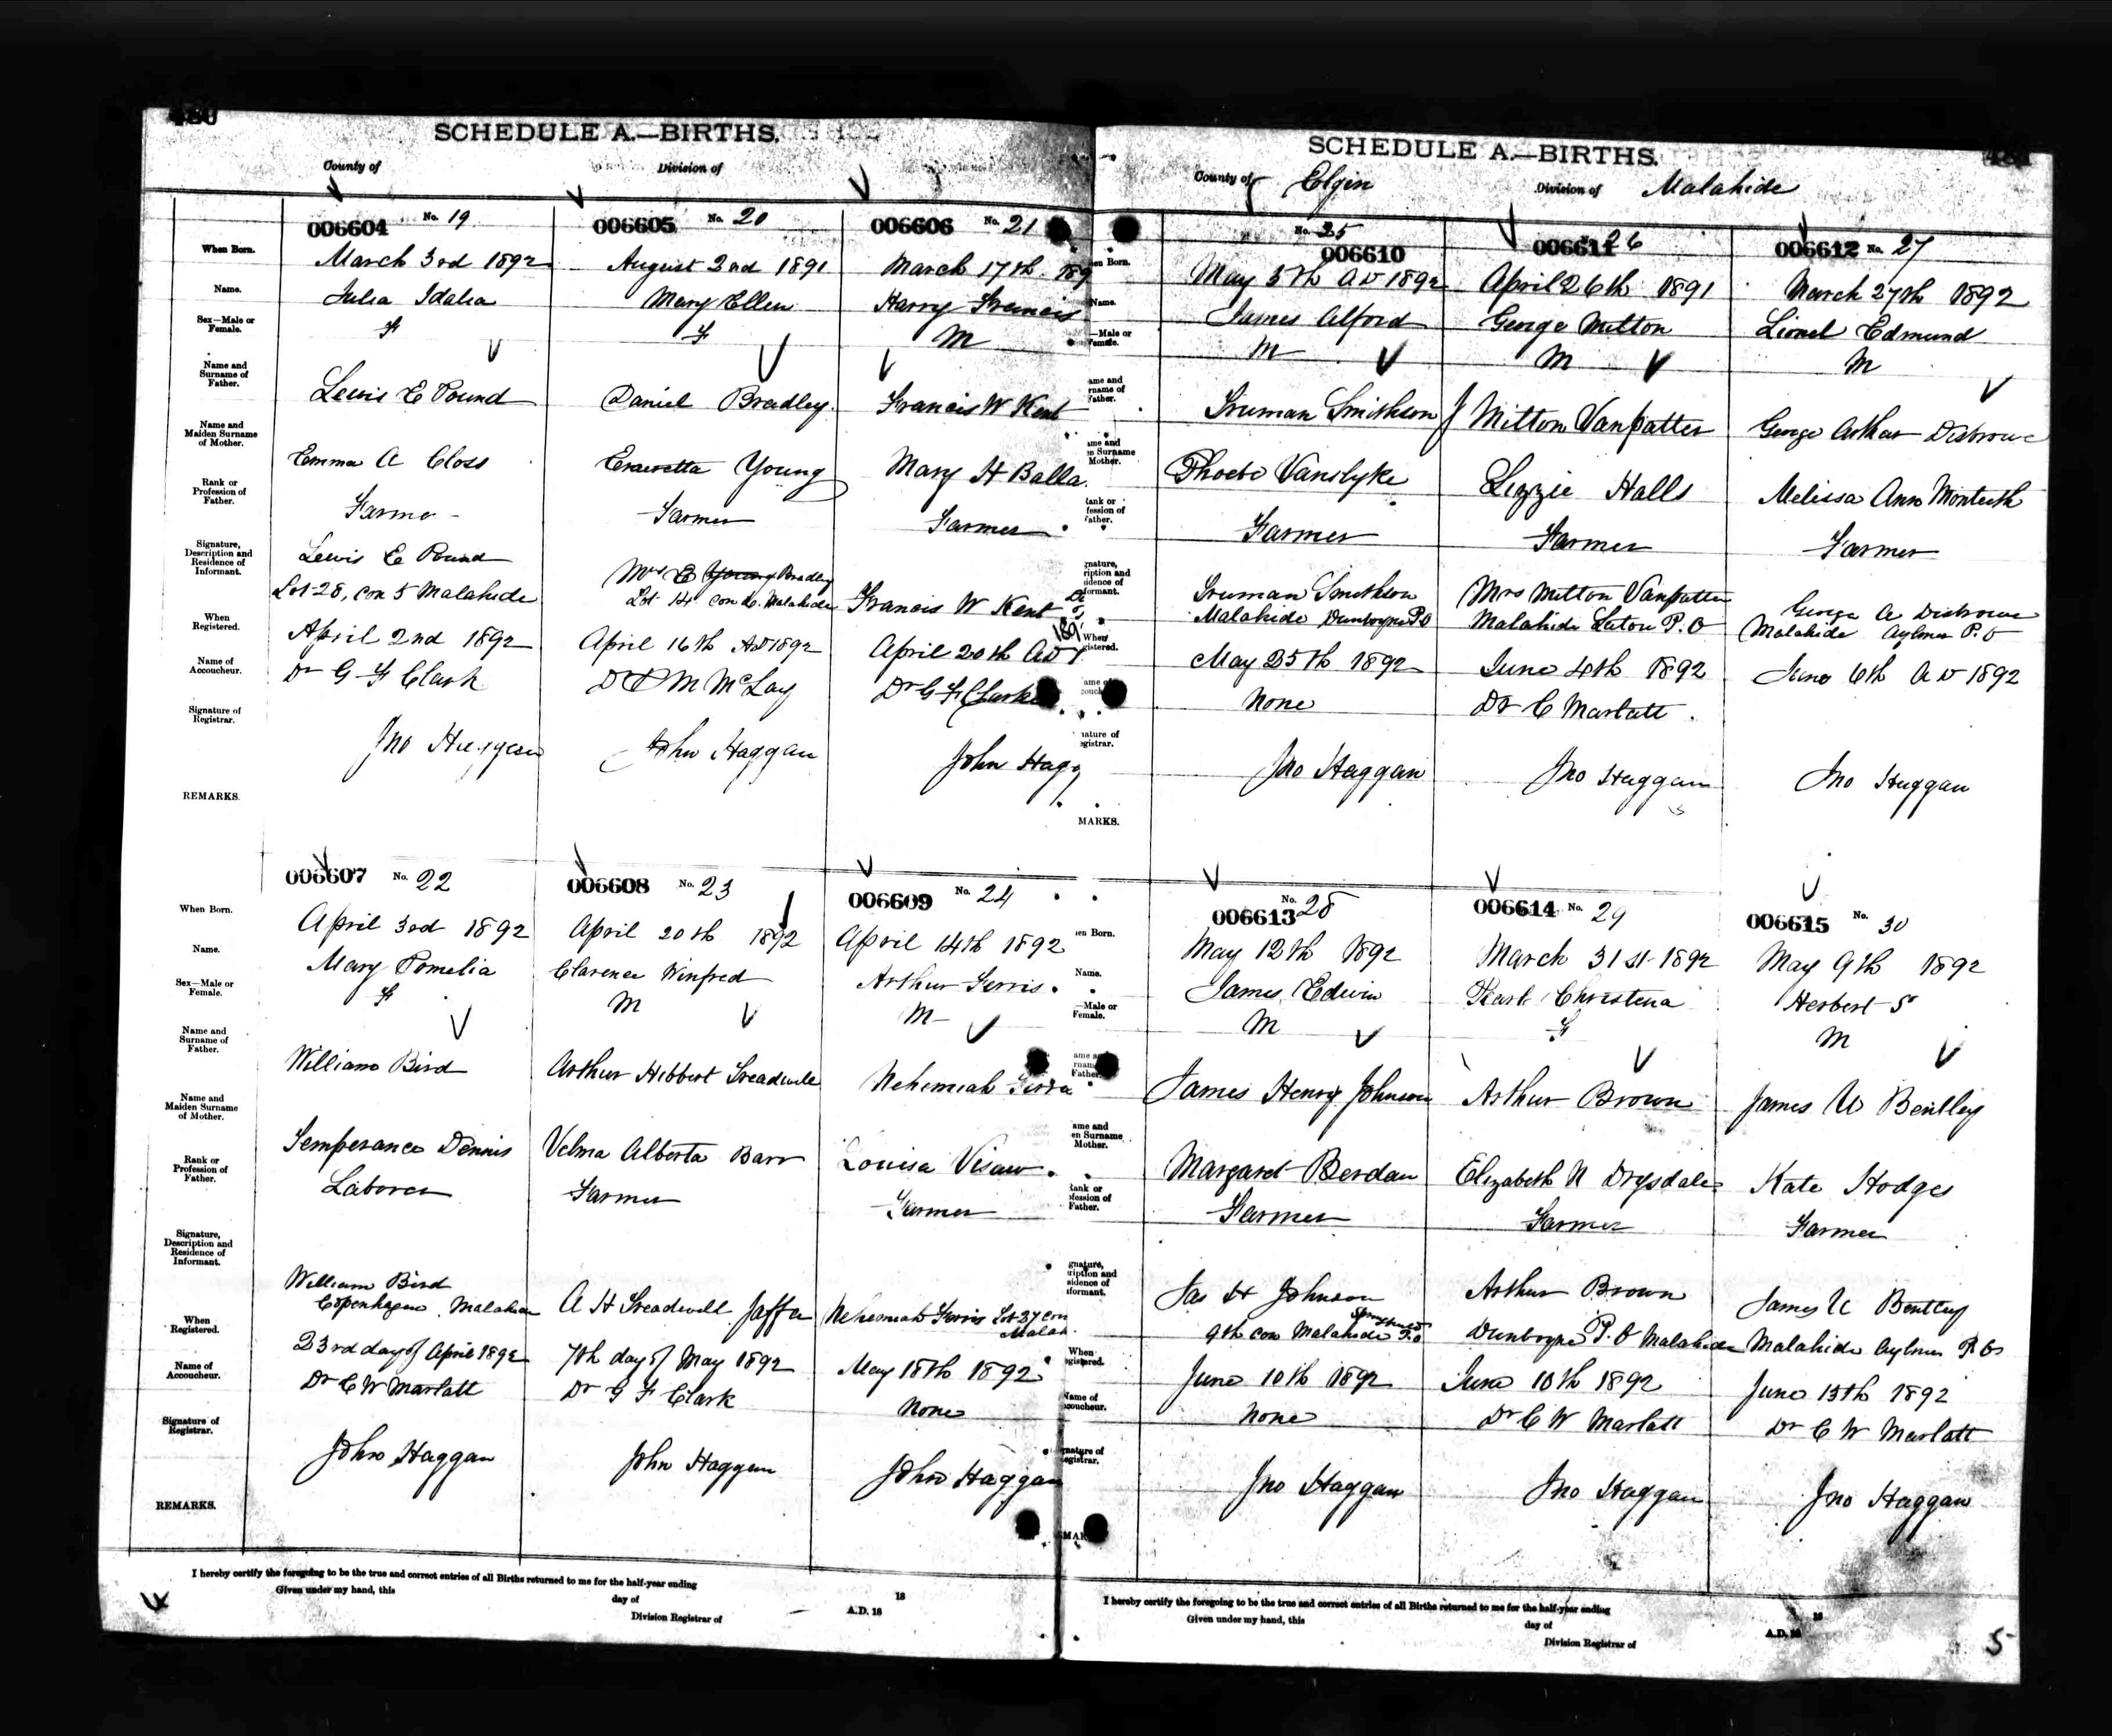 SCHEDULE A.—BIRTHS.
County of Division of
006604 No. 19 006605 No. 20 006606 No. 21
When Born. March 3rd 1892 August 2nd 1891 March 17th 189
Name. Julia Idalia Mary Ellen Harry Francis
Sex—Male or Female. F F M
Name and Surname of Father. Lewis E Pound Daniel Bradley. Francis W Kent
Name and Maiden Surname of Mother. Emma A Closs Young Mary H Balla
Rank or Profession of Father. Farmer Farmer
Signature, Description and Residence of Informant. Lewis E Pound Mrs E Young Bradley
Lot 28, con 5 Malahide Lot 14 con Malahide Francis W Kent
When Registered. April 2nd 1892 April 16th AD 1892 April 20th AD 189
Name of Accoucheur. Dr G F Clark McLay Dr G F Clark
Signature of Registrar. Jno John Haggan John Hagg
REMARKS.
006607 No. 22 006608 No. 23 006609 No. 24
When Born. April 3rd 1892 April 20th 1892 April 14th 1892
Name. Mary Pomelia Clarence Winfred Arthur Ferris
Sex—Male or Female. F M M
Name and Surname of Father. William Bird Arthur Hibbert Treadwell Nehemiah
Name and Maiden Surname of Mother. Temperance Dennis Velma Alberta Barr Louisa
Rank or Profession of Father. Laborer Farmer Farmer
Signature, Description and Residence of Informant. William Bird
Copenhagen Malahide A H Treadwell Jaffa Nehemiah Ferris Lot 27 con
Malah.
When Registered. 23rd day of April 1892 7th day of May 1892 May 18th 1892
Name of Accoucheur. Dr C W Marlatt Dr G F Clark None
Signature of Registrar. John Haggan John Haggan John Haggan
REMARKS.
I hereby certify the foregoing to be the true and correct entries of all Births returned to me for the half-year ending 18
Given under my hand, this day of A.D. 18
Division Registrar of
SCHEDULE A.—BIRTHS.
County of Elgin Division of Malahide
No. 25 26 No. 27
006610 006611 006612
en Born. May 5th AD 1892 April 26th 1891 March 27th 1892
Name. James Alford George Milton Lionel Edmund
—Male or Female. M M M
ame and rname of Father. Truman Smithson J Milton VanPatter George Arthur Disbrowe
ame and en Surname Mother. Phoebe Vanslyke Lizzie Halls Melissa Ann Monteith
Rank or fession of Father. Farmer Farmer Farmer
gnature, ription and idence of formant. Truman Smithson Mrs Milton Vanpatter George A Disbrowe
Malahide Dunboyne P.O Malahide Luton P.O Malahide Aylmer P.O
When gistered. May 25th 1892 June 4th 1892 June 6th AD 1892
ame of coucheur. None Dr C Marlatt.
nature of egistrar. Jno Haggan Jno Haggan Jno Haggan
MARKS.
006613 No. 28 006614 No. 29 006615 No. 30
en Born. May 12th 1892 March 31st 1892 May 9th 1892
Name. James Edwin Pearl Christena Herbert S
—Male or Female. M F M
James Henry Johnson Arthur Brown James W Bentley
ame and en Surname Mother. Margaret Berdan Elizabeth N Drysdale Kate Hodges
Rank or ofession of Father. Farmer Farmer Farmer
gnature, ription and sidence of formant. Jas H Johnson Arthur Brown James W Bentley
9th con Malahide P.O Dunboyne P.O Malahide Malahide Aylmer P.O
When egistered. June 10th 1892 June 10th 1892 June 13th 1892
Name of coucheur. None Dr C W Marlatt Dr C W Marlatt
gnature of egistrar. Jno Haggan Jno Haggan Jno Haggan
I hereby certify the foregoing to be the true and correct entries of all Births returned to me for the half-year ending 18
Given under my hand, this day of A.D. 18
Division Registrar of
5